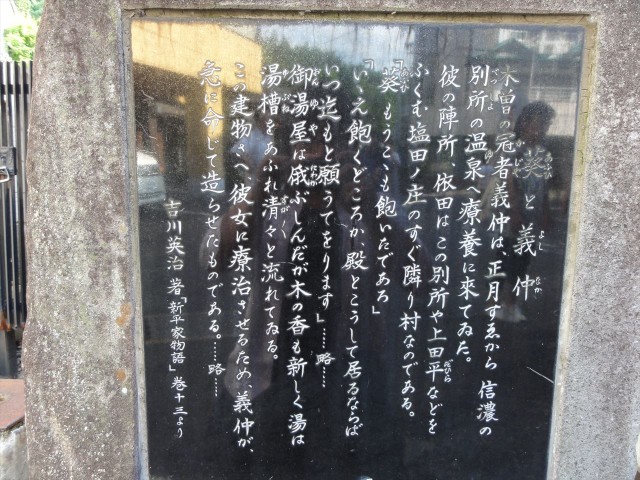 葵と義仲
木曽の冠者義仲は、正月すゑから 信濃の
別所の温泉へ療養に來てゐた。
彼の陣所、依田はこの別所や上田平などを
ふくむ塩田ノ庄のすぐ隣り村なのである。
「葵 もうこゝも飽いたであろ」
「いゝえ飽くどころか、殿とこうして居るならば
いつ迄もと願うてをります」……略……
御湯屋は俄ぶしんだが木の香も新しく湯は
湯槽をあふれ清々と流れてゐる。
この建物さへ、彼女に療治させるため、義仲が、
急に命じて造らせたものである。……略……
吉川英治 著「新平家物語」巻十三より